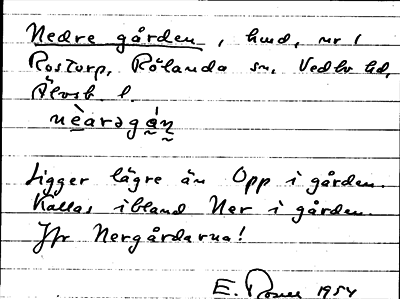 Nedre gården, hmd, nr 1
Rostorp, Rölanda sn, Vedbo hd,
Älvsb. l.
nèarəgá̰n̰
Ligger lägre än Opp i gården.
Kallas ibland Ner i gården.
Jfr Nergårdarna!
E. 1954